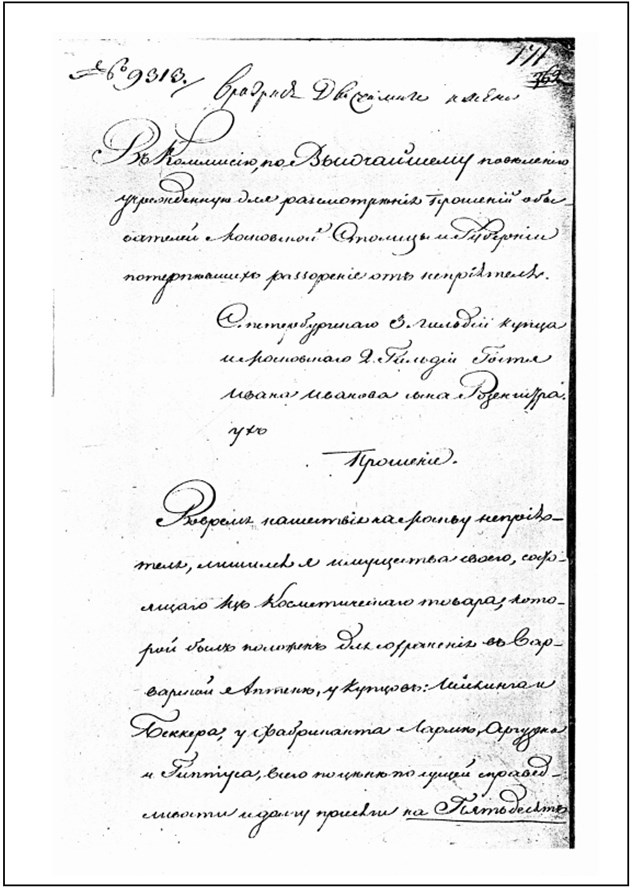 № 9313.
171
762
Въ Коммисію, по Высочайшему повелѣнію
учрежденную для разсмотрѣнія прошеній обы-
вателей Московской Столицы и Губерніи
потерпѣвшихъ раззореніе отъ непріятеля.
С.петербургскаго 3. гильдіи купца
и московскаго 2. Гильдіи Гостя
Ивана Иванова сына Розенштра-
ухъ
Прошеніе.
Вовремя нашествія на Москву непрія-
теля, лишился я имущества своего, состо-
ящаго изъ Косметическаго товара, кото-
рой былъ положенъ для сохраненія въ Вар-
варской Аптекѣ, у купцовъ:
Беккера, у фабриканта Ларме,
и Гиптуса, всего по цѣнѣ по сущей справед-
ливости и долгу присяги на Пятьдесятъ